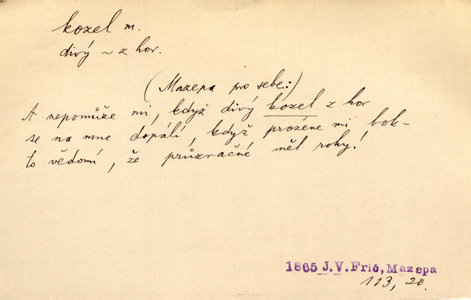 kozel m.
divý ~ z hor.
(Mazepa pro sebe:)
A nepomůže mi, když divý kozel z hor
se na mne dopálí, když prožene mi bok-
to vědomí, že průzračné měl rohy!
1865 J.V. Frič, Mazepa
113, 20.